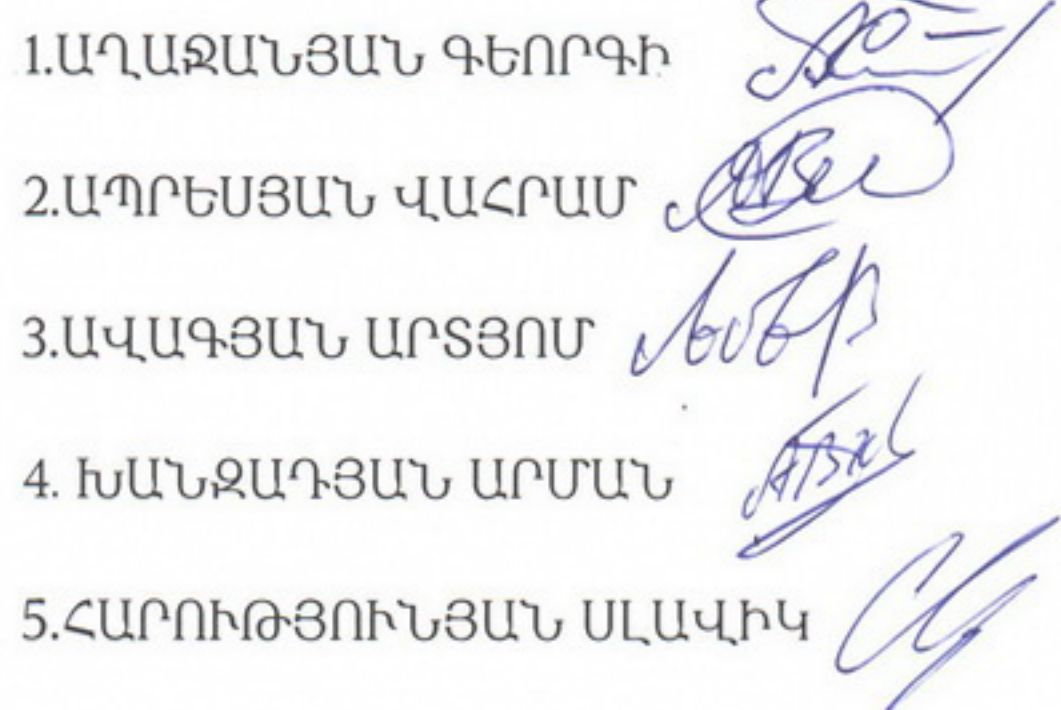 1.ԱՂԱՋԱՆՅԱՆ ԳԵՈՐԳԻ
2.ԱՊՐԵՍՅԱՆ ՎԱՀՐԱՄ
3.ԱՎԱԳՅԱՆ ԱՐՏՅՈՄ
4. ԽԱՆԶԱԴՅԱՆ ԱՐՄԱՆ
5.ՀԱՐՈՒԹՅՈՒՆՅԱՆ ՍԼԱՎԻԿ